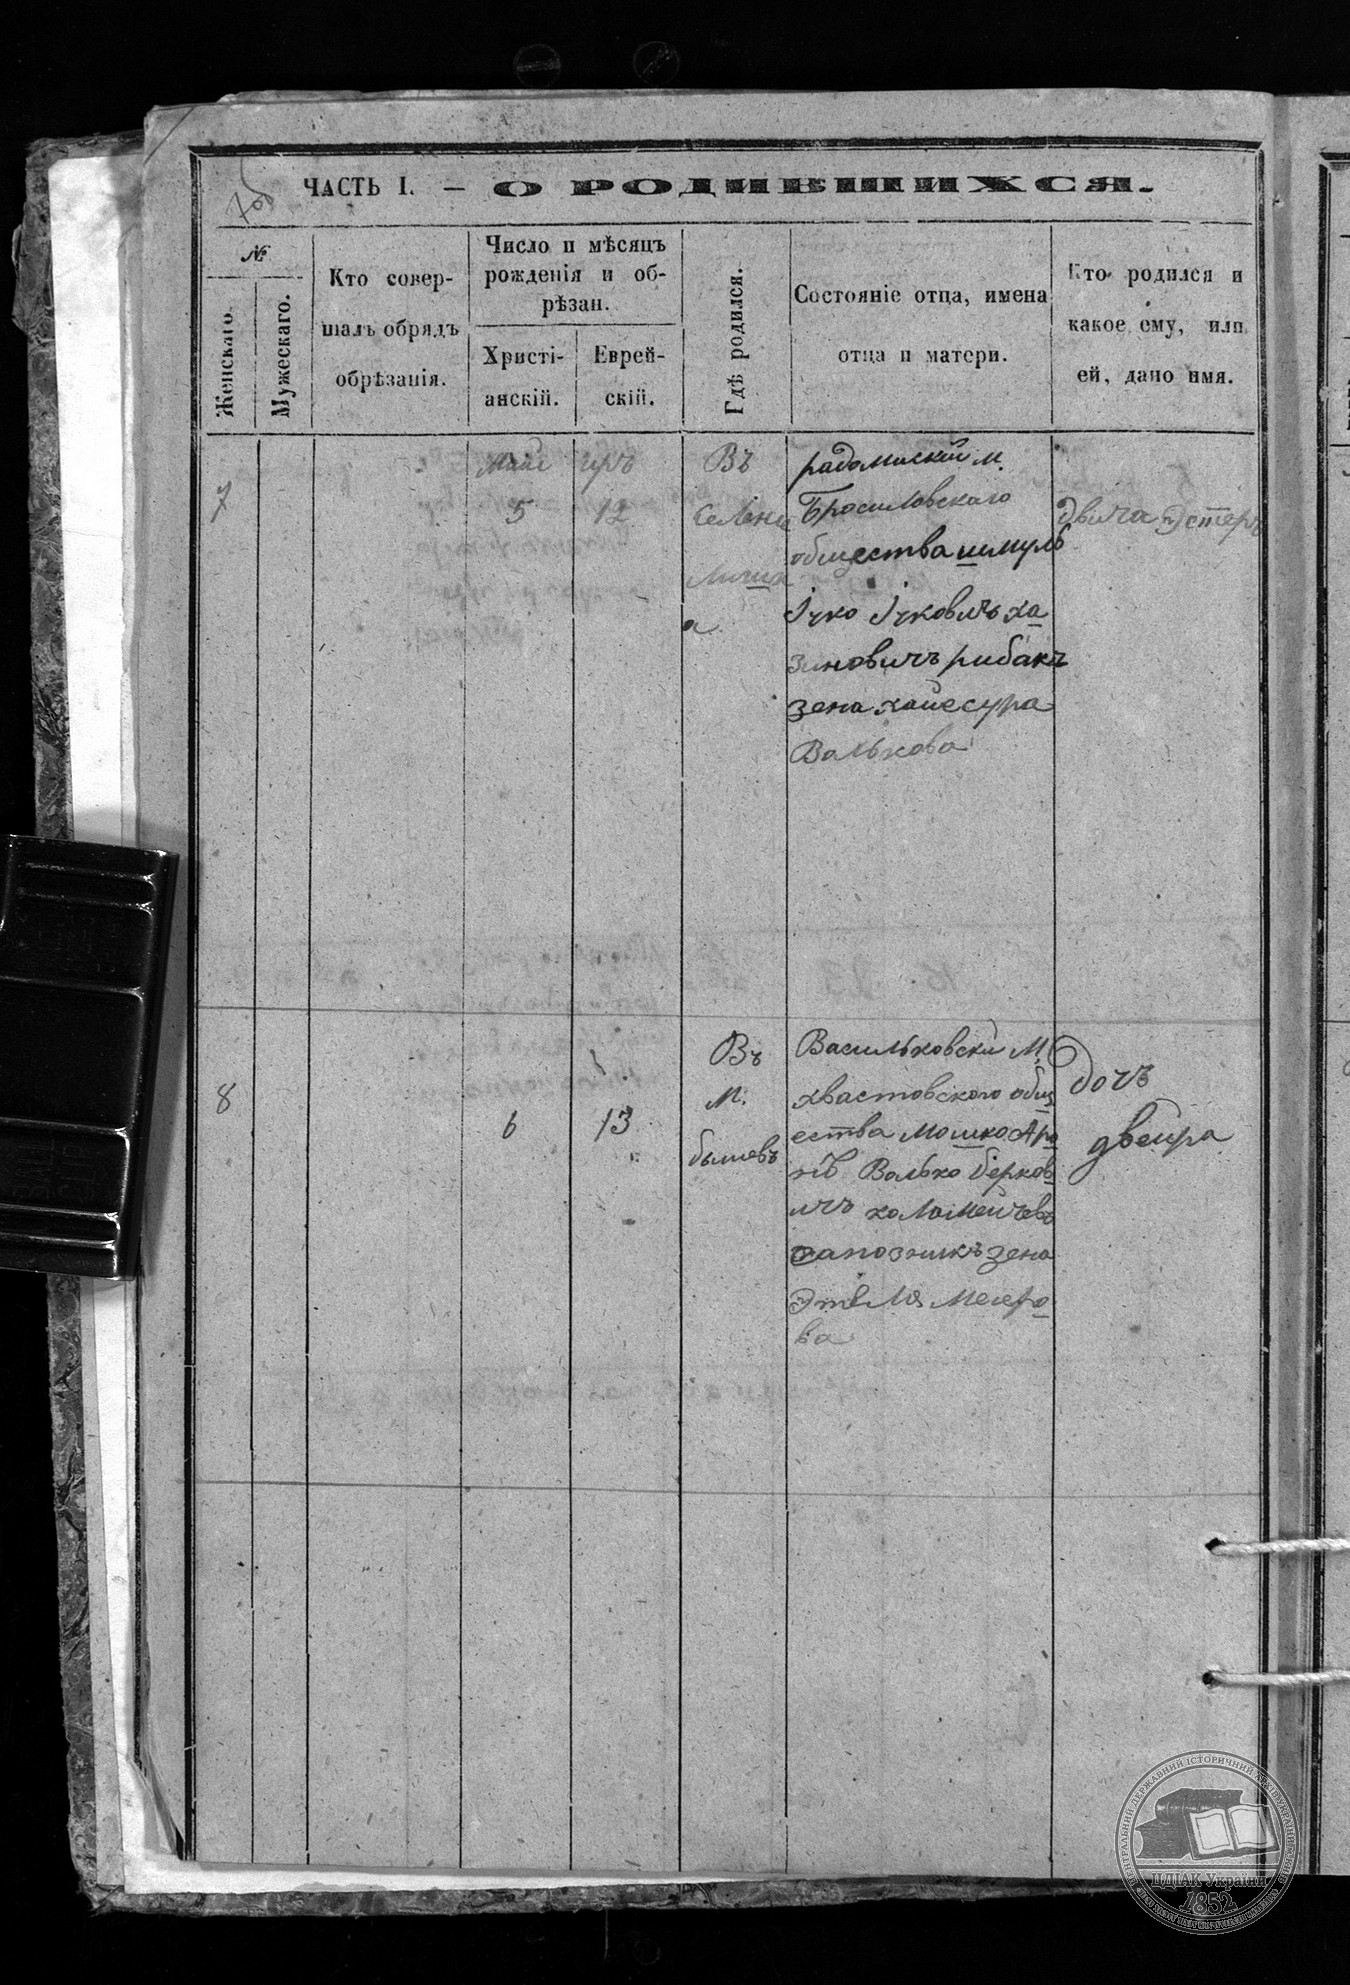 ЧАСТЬ I. — О РОДИВШИХСЯ.
№
Женскаго.
Мужескаго.
Кто совер-
шалъ обрядъ
обрѣзанія.
Число и мѣсяцъ
рожденія и об-
рѣзан.
Христі-
анскій.
Еврей-
скій.
Гдѣ родился.
Состояніе отца, имена
отца и матери.
Кто родился и
какое ему, или
ей, дано имя.
7
Май
5
12
Въ
селени
а
радомиский м.
Бросиловскаго
общества шмуль
Ічко Ічковичъ ха
зиновичъ рибакъ
зена хайесура
Валькова
Эстеръ
8
6
13
Въ
м.
бышевъ
Васильковски М
хвастовского общ
ества Мошко Аро
нъ Волько берков
ичъ коломейчевъ
сапозникъ зена
Этля Меиро
ва
дочъ
двейра
ЦЕНТРАЛЬНИЙ ДЕРЖАВНИЙ ІСТОРИЧНИЙ АРХІВ УКРАЇНИ
ЦДІАК України
1852